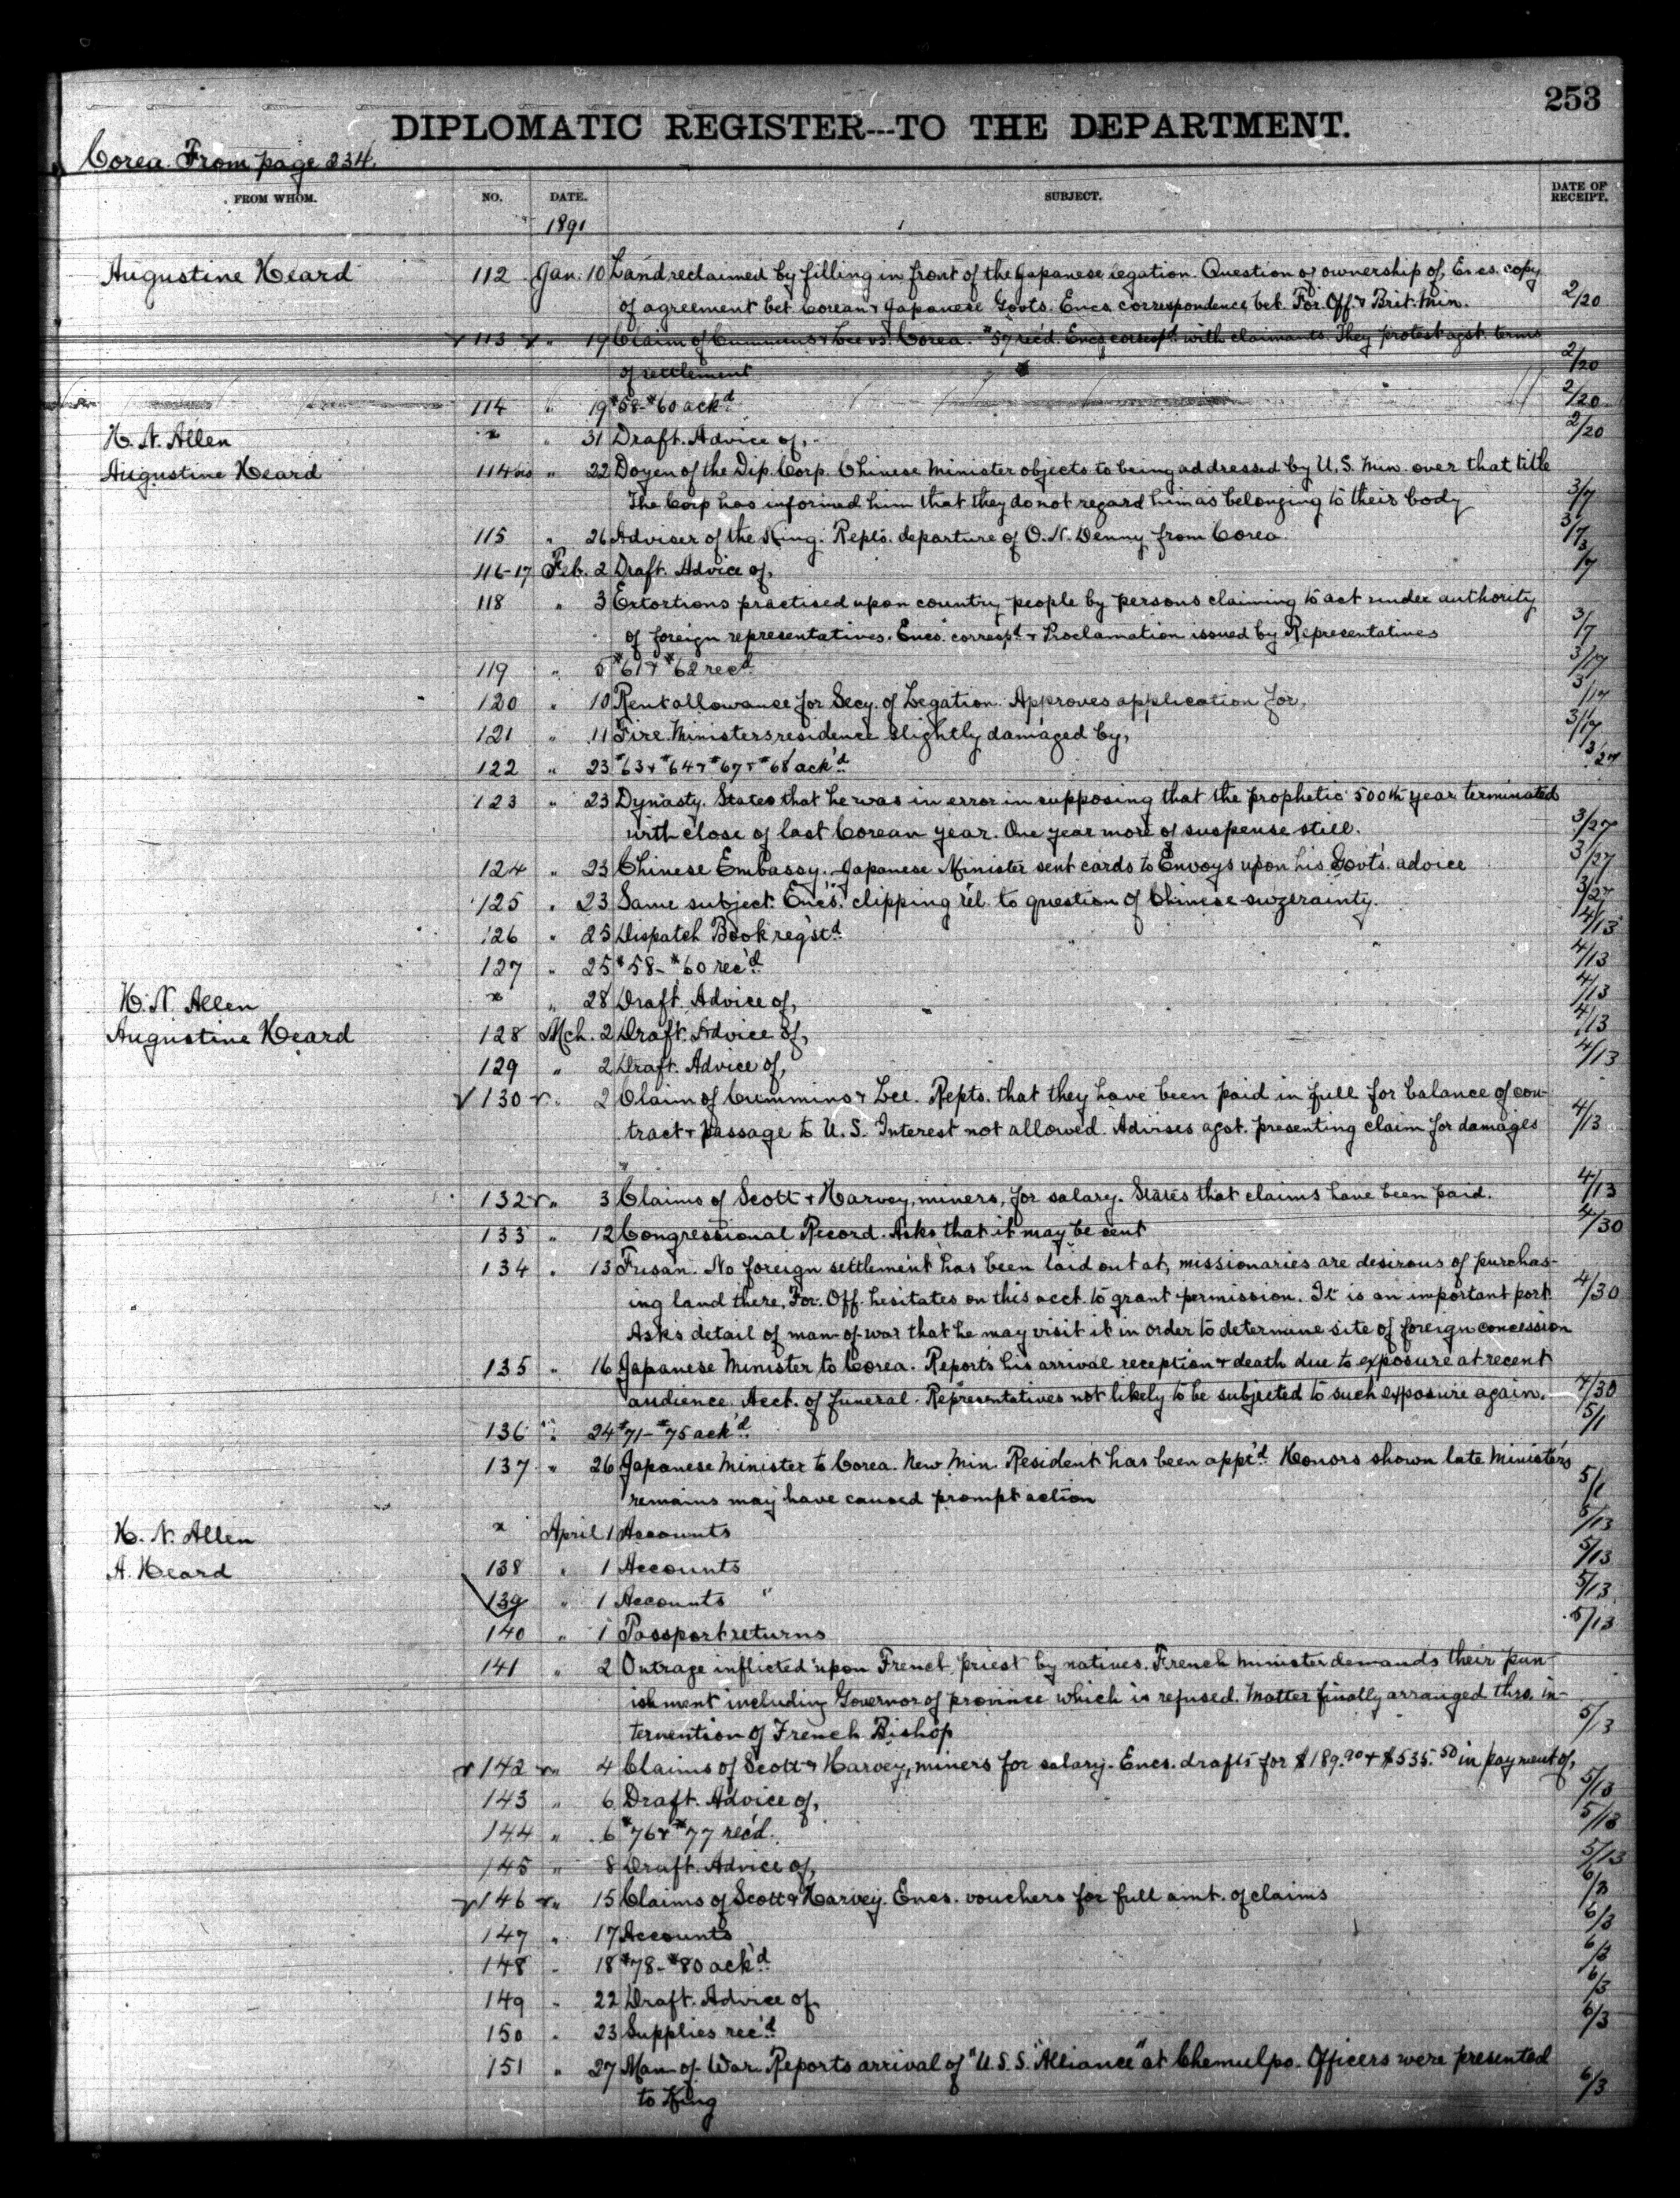 253
DIPLOMATIC REGISTER---TO THE DEPARTMENT.
Corea. From page 234.
FROM WHOM. NO. DATE. SUBJECT. DATE OF RECEIPT.
1891
Augustine Heard 112 Jan. 10 Land reclaimed by filling in front of the Japanese legation. Question of ownership of, Encs. copy
of agreement bet Corean & Japanese Govts. Encs. correspondence bet. For. Off. & Brit. Min. 2/20
113 " 19 Claim of Cummins & Lee vs. Corea. #57 rec'd. Encs. corresp'd with claimants. They protest agst. terms
of settlement 2/20
114 " 19 #58-#60 ack'd 2/20
H. N. Allen x " 31 Draft. Advice of, 2/20
Augustine Heard 114 " 22 Doyen of the Dip. Corp. Chinese Minister objects to being addressed by U.S. Min. over that title
The Corp has informed him that they do not regard him as belonging to their body 3/7
115 " 26 Adviser of the King. Repts. departure of O. N. Denny from Corea. 3/7
116-17 Feb. 2 Draft. Advice of, 3/7
118 " 3 Extortions practised upon country people by persons claiming to act under authority
of foreign representatives. Encs. corresp'd & Proclamation issued by Representatives 3/7
119 " 5 #61 & #62 rec'd 3/17
120 " 10 Rent allowance for Secy. of Legation. Approves application for, 3/17
121 " 11 Fire. Ministers residence slightly damaged by, 3/17
122 " 23 #63 & #64 & #67 & #68 ack'd 3/27
123 " 23 Dynasty. States that he was in error in supposing that the prophetic 500th year terminated
with close of last Corean year. One year more of suspense still. 3/27
124 " 23 Chinese Embassy. Japanese Minister sent cards to Envoys upon his Govt's. advice 3/27
125 " 23 Same subject. Encs. clipping rel. to question of Chinese suzerainty. 3/27
126 " 25 Dispatch Book reqst'd 4/13
127 " 25 #58-#60 rec'd 4/13
H. N. Allen x " 28 Draft. Advice of, 4/13
Augustine Heard 128 Mch. 2 Draft. Advice of, 4/13
129 " 2 Draft. Advice of, 4/13
130 " 2 Claim of Cummins & Lee. Repts. that they have been paid in full for balance of con-
tract & passage to U.S. Interest not allowed. Advises agst. presenting claim for damages 4/13
132 " 3 Claims of Scott & Harvey, miners, for salary. States that claims have been paid. 4/13
133 " 12 Congressional Record. Asks that it may be sent 4/30
134 " 13 Fusan. No foreign settlement has been laid out at, missionaries are desirous of purchas-
ing land there, For. Off. hesitates on this acct. to grant permission. It is an important port. 4/30
Asks detail of man-of-war that he may visit it in order to determine site of foreign concession
135 " 16 Japanese Minister to Corea. Reports his arrival reception & death due to exposure at recent
audience. Acct. of funeral. Representatives not likely to be subjected to such exposure again. 4/30
136 " 24 #71-#75 ack'd 5/1
137 " 26 Japanese Minister to Corea. New Min. Resident has been appt'd. Honors shown late Minister's
remains may have caused prompt action 5/1
H. N. Allen x April 1 Accounts 5/13
A. Heard 138 " 1 Accounts 5/13
139 " 1 Accounts " 5/13
140 " 1 Passport returns 5/13
141 " 2 Outrage inflicted upon French priest by natives. French Minister demands their pun-
ishment including Governor of province which is refused. Matter finally arranged thro. in-
tervention of French Bishop 5/13
142 " 4 Claims of Scott & Harvey, miners for salary. Encs. drafts for $189.90 & $535.50 in payment of, 5/13
143 " 6 Draft. Advice of, 5/13
144 " 6 #76 & #77 rec'd. 5/13
145 " 8 Draft. Advice of, 6/3
146 " 15 Claims of Scott & Harvey. Encs. vouchers for full amt. of claims 6/3
147 " 17 Accounts 6/3
148 " 18 #78-#80 ack'd 6/3
149 " 22 Draft. Advice of, 6/3
150 " 23 Supplies rec'd
151 " 27 Man-of-War. Reports arrival of "U.S.S. Alliance" at Chemulpo. Officers were presented
to King 6/3